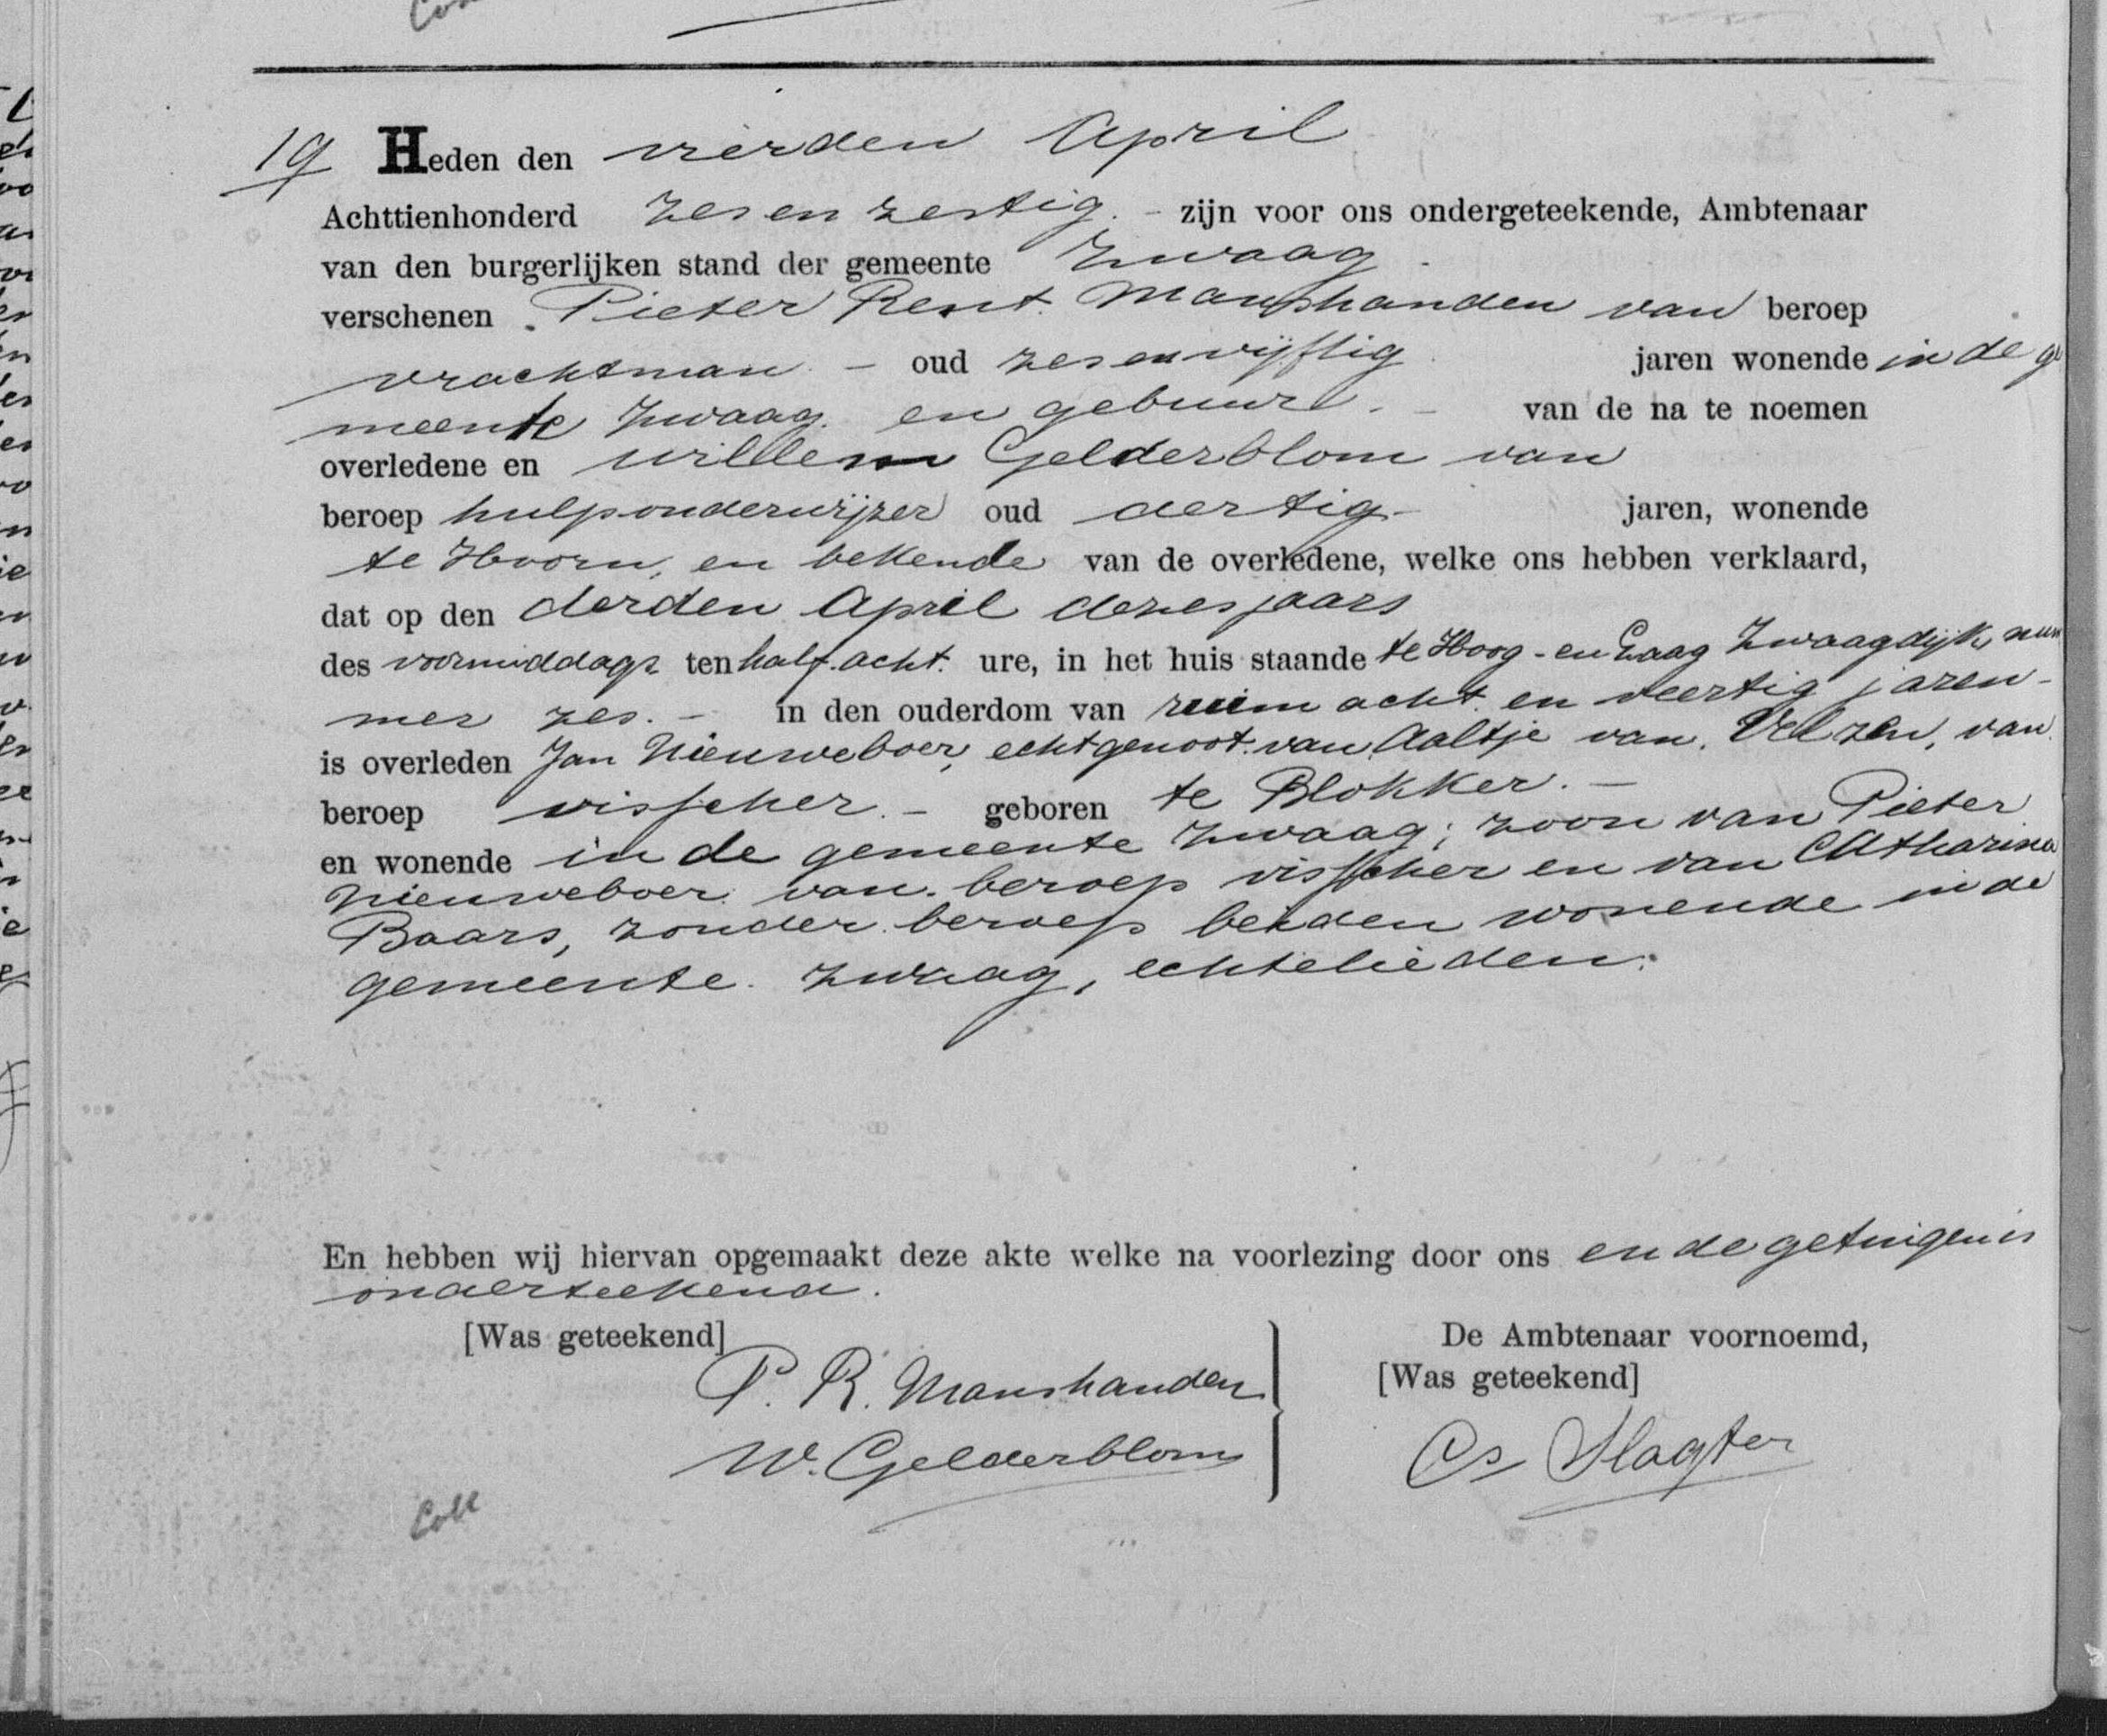 19 Heden den vierden April
Achttienhonderd zes en zestig. - zijn voor ons ondergeteekende, Ambtenaar
van den burgerlijken stand der gemeente Zwaag
verschenen Pieter Rent. Manshanden van beroep
vrachtman. - oud zes en vijftig jaren wonende in de ge
meente Zwaag. en gebuur. - van de na te noemen
overledene en Willem Gelderblom van
beroep hulponderwijzer oud dertig - jaren, wonende
te Hoorn, en bekende van de overledene, welke ons hebben verklaard,
dat op den derden April dezes jaars
des voormiddags ten half acht. ure, in het huis staande te Hoog - en Laag Zwaagdijk, num
mer zes. - in den ouderdom van ruim acht en veertig jaren -
is overleden Jan Nieuweboer, echtgenoot van Aaltje van Velzen, van
beroep visscher. - geboren te Blokker. -
en wonende in de gemeente Zwaag; zoon van Pieter
Nieuweboer van beroep visscher en van Catharina
Baars, zonder beroep beiden wonende in de
gemeente Zwaag, echtelieden.
En hebben wij hiervan opgemaakt deze akte welke na voorlezing door ons en de getuigen is
onderteekend.
[Was geteekend] De Ambtenaar voornoemd,
P. R. Manshanden [Was geteekend]
W. Gelderblom Cs Slagter
Coll